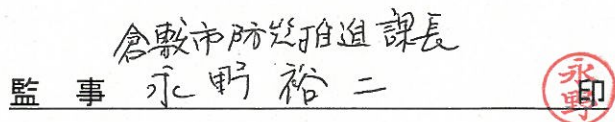 倉敷市防災推進課長
監事 永野裕二 印
永野